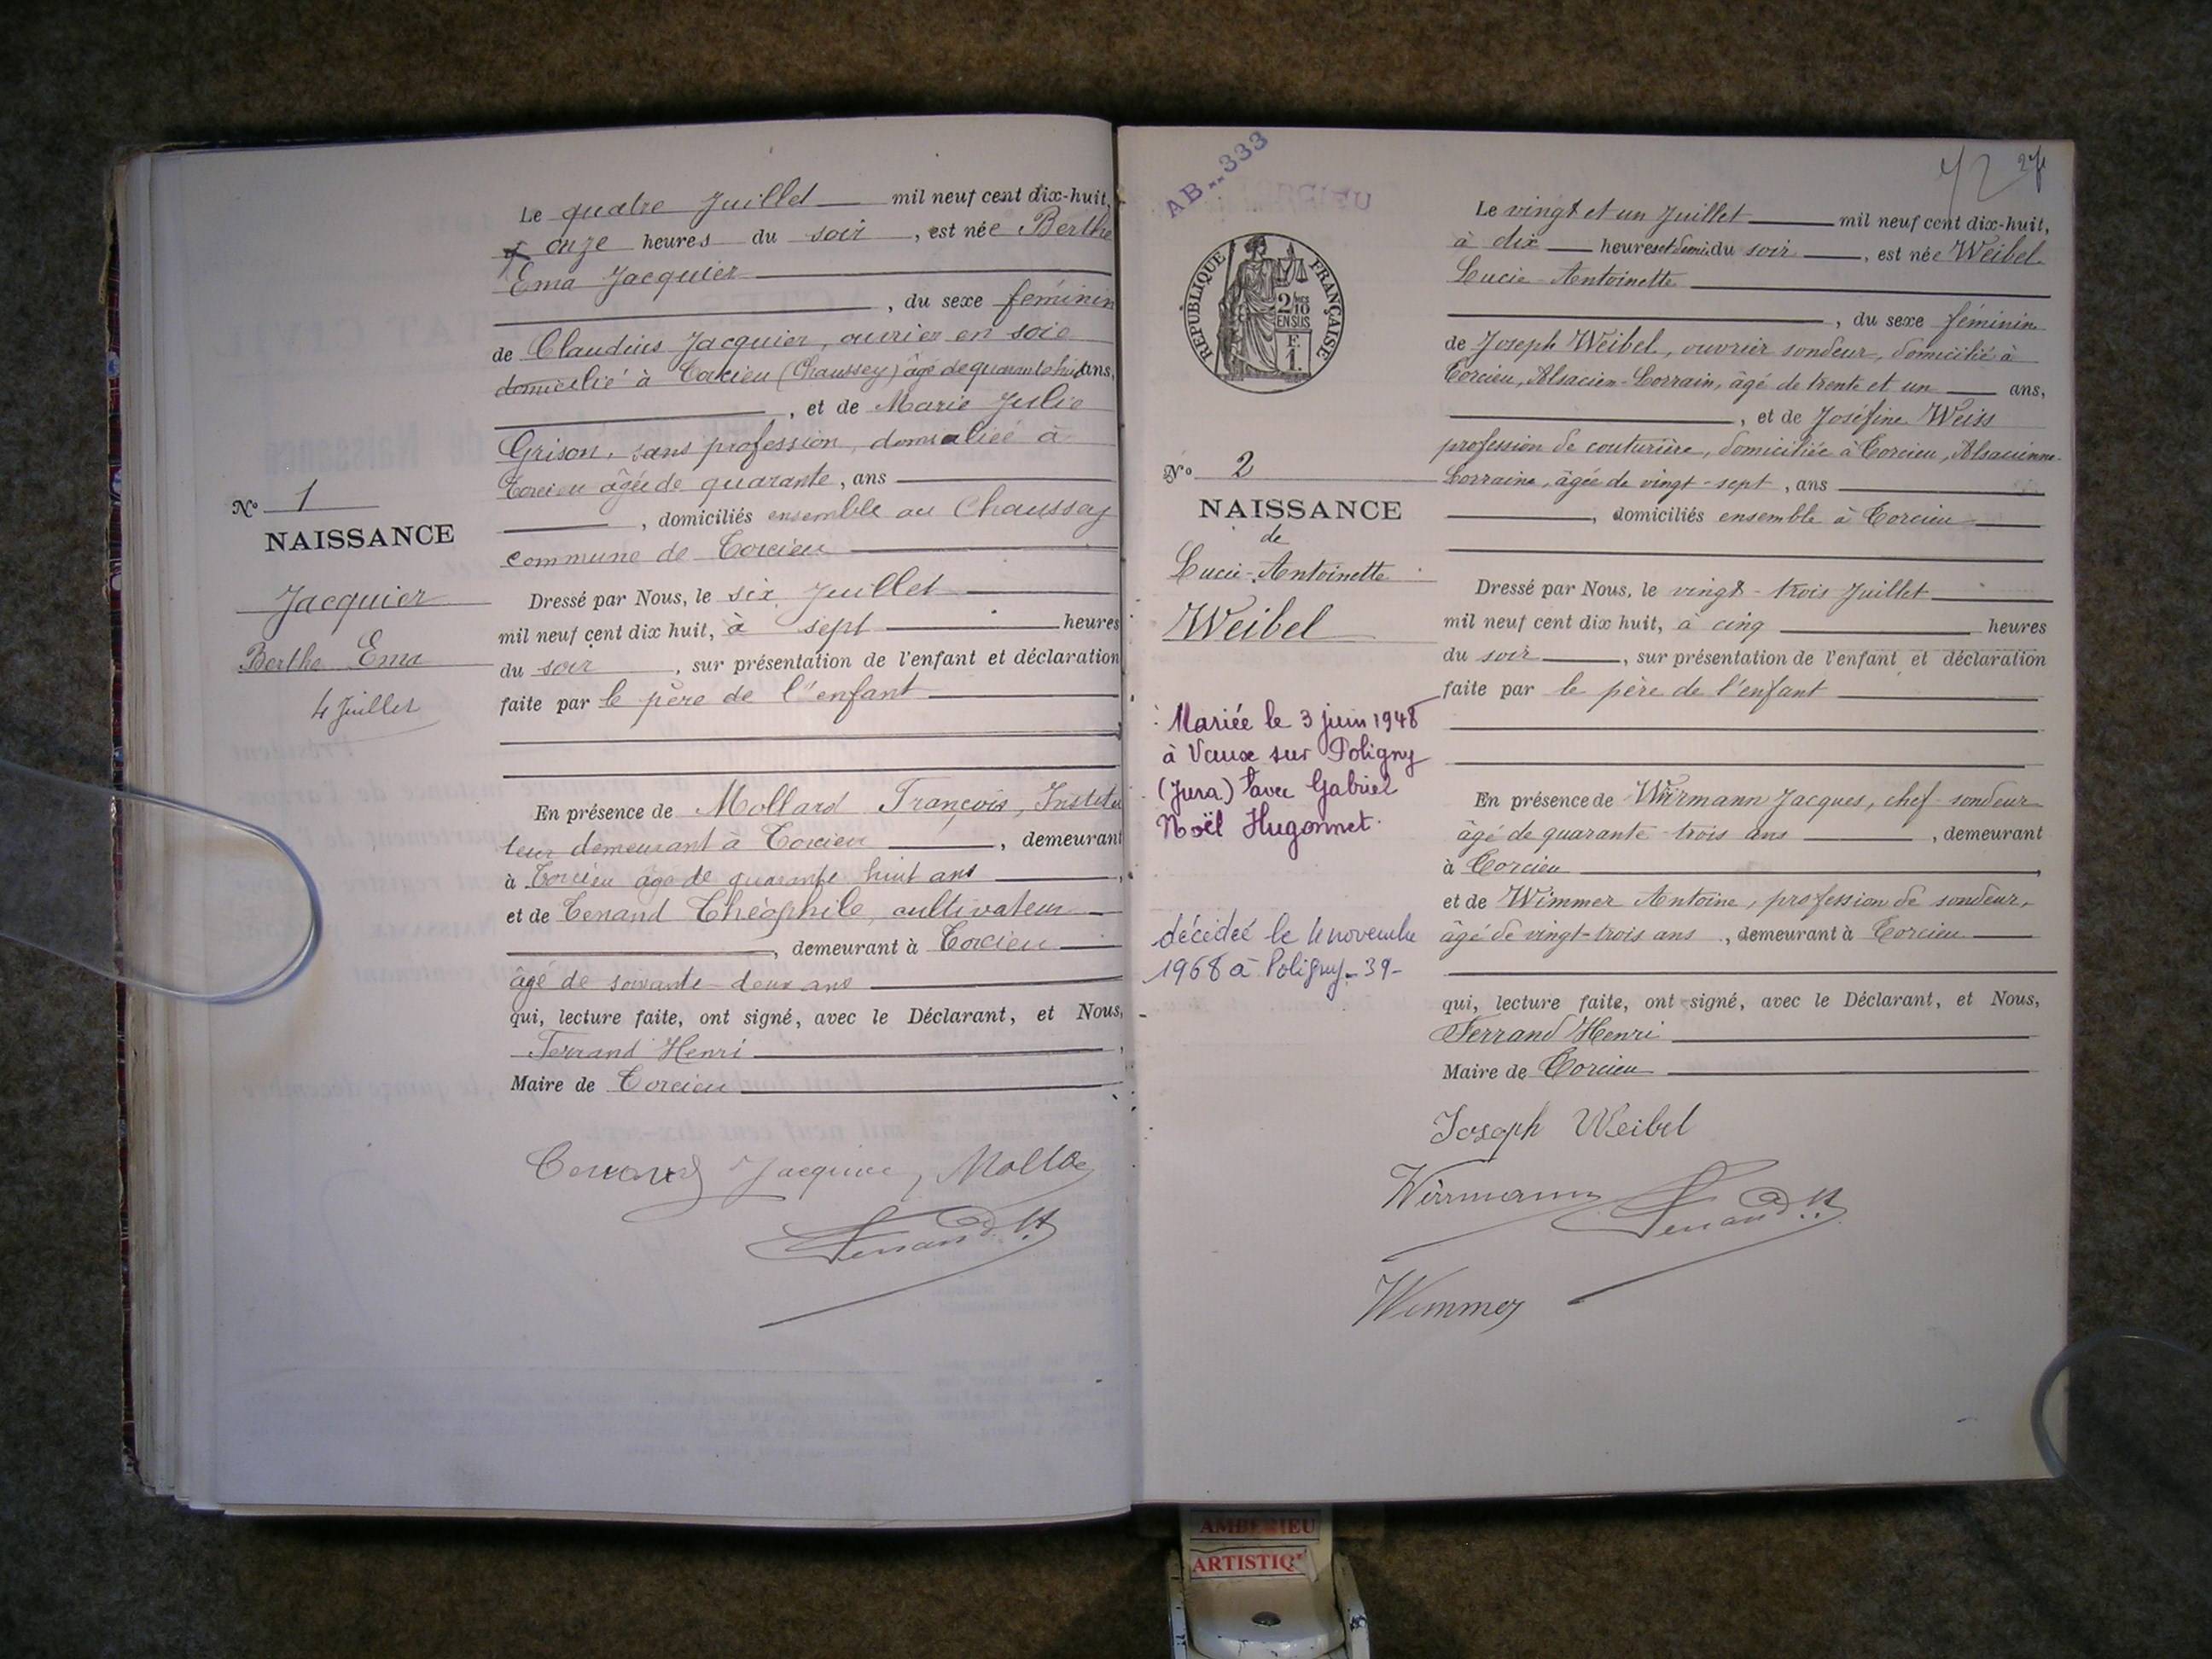 Le quatre Juillet mil neuf cent dix-huit,
à onze heures du soir, est née Berthe
Ema Jacquier
, du sexe féminin
de Claudius Jacquier, ouvrier en soie
domicilié à Torcieu (Chaussey) âgé de quarante huit ans,
, et de Marie Julie
Grison, sans profession, domiciliée à
Torcieu âgée de quarante, ans
, domiciliés ensemble au Chaussey
commune de Torcieu
Dressé par Nous, le six Juillet
mil neuf cent dix huit, à sept heures
du soir, sur présentation de l'enfant et déclaration
faite par le père de l'enfant
En présence de Mollard François, Institu
teur demeurant à Torcieu, demeurant
à Torcieu âgé de quarante huit ans,
et de Tenand Théophile, cultivateur
, demeurant à Torcieu
âgé de soixante-deux ans
qui, lecture faite, ont signé, avec le Déclarant, et Nous,
Ferrand Henri,
Maire de Torcieu
Tenand Jacquier Mollard
Ferrand H.
No 1
NAISSANCE
Jacquier
Berthe Ema
4 Juillet
AB..333
72 27
RÉPUBLIQUE FRANÇAISE
2/10
EN SUS
F.
1.
No 2
NAISSANCE
de
Lucie-Antoinette
Weibel
Mariée le 3 juin 1948
à Vaux sur Poligny
(Jura) avec Gabriel
Noël Hugonnet.
décédée le 4 novembre
1968 à Poligny-39-
Le vingt et un Juillet mil neuf cent dix-huit,
à dix heures et demie du soir, est née Weibel
Lucie-Antoinette
, du sexe féminin
de Joseph Weibel, ouvrier sondeur, domicilié à
Torcieu, Alsacien-Lorrain, âgé de trente et un ans,
, et de Joséfine Weiss
profession de couturière, domiciliée à Torcieu, Alsacienne-
Lorraine, âgée de vingt-sept, ans
, domiciliés ensemble à Torcieu
Dressé par Nous, le vingt-trois Juillet
mil neuf cent dix huit, à cinq heures
du soir, sur présentation de l'enfant et déclaration
faite par le père de l'enfant
En présence de Würmann Jacques, chef-sondeur
âgé de quarante-trois ans, demeurant
à Torcieu,
et de Wimmer Antoine, profession de sondeur,
âgé de vingt-trois ans, demeurant à Torcieu
qui, lecture faite, ont signé, avec le Déclarant, et Nous,
Ferrand Henri
Maire de Torcieu
Joseph Weibel
Wirrmann Ferrand H.
Wimmer
AMBERIEU
ARTISTIQ